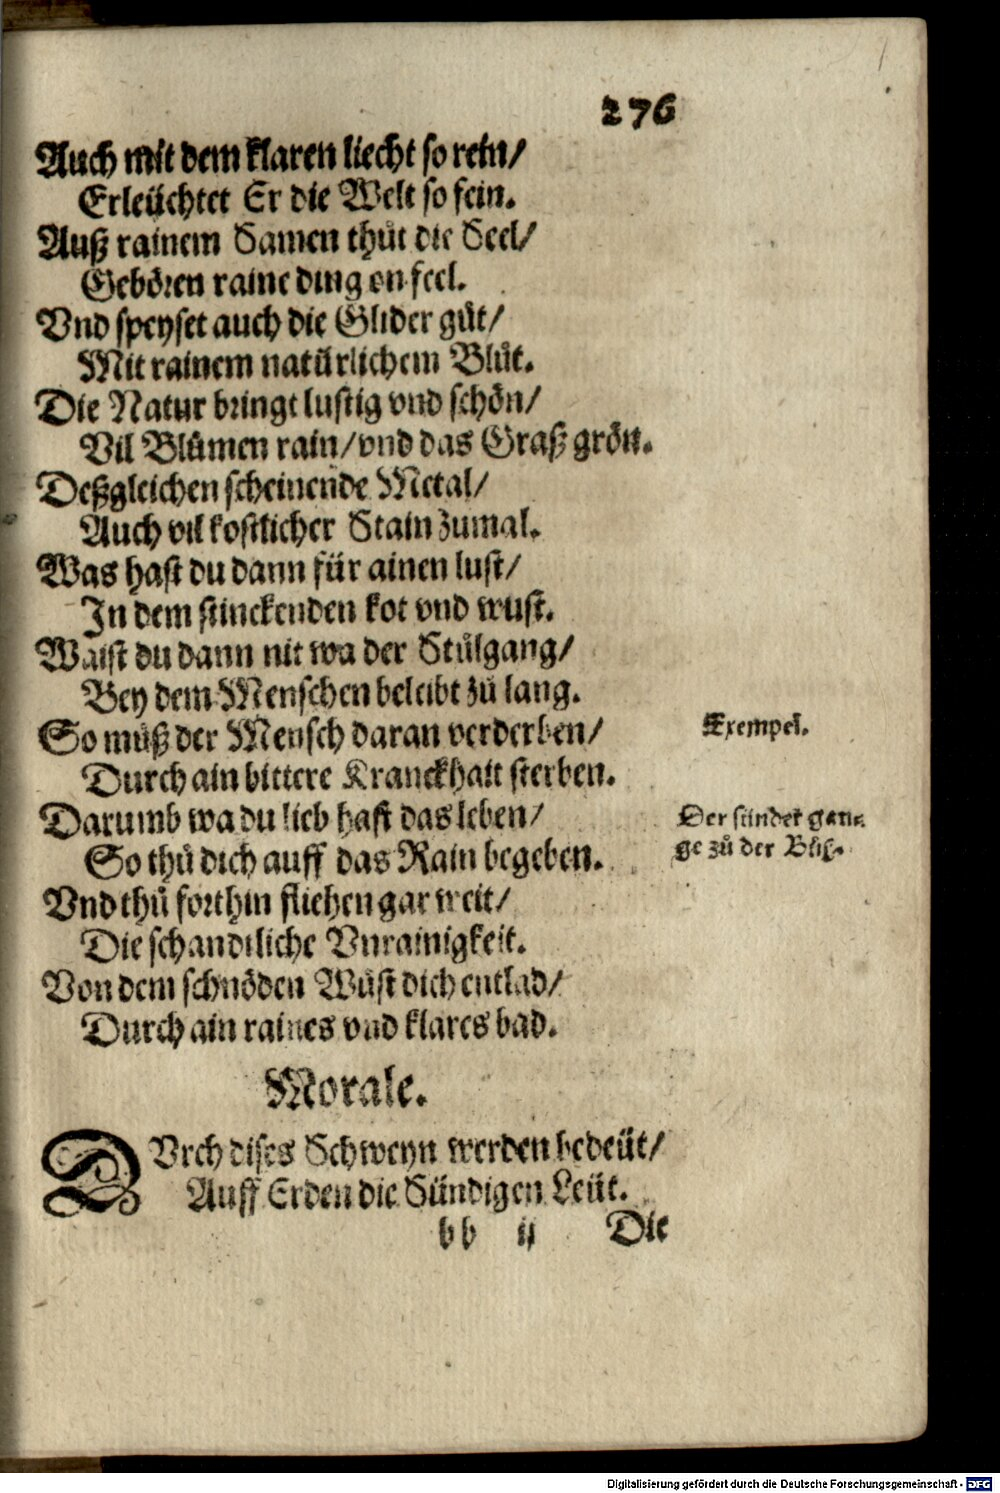 276
Auch mit dem klaren liecht so rein/
Erleüchtet Er die Welt so fein.
Auß rainem Samen thůt die Seel/
Gebören raine ding on feel.
Vnd speyset auch die Glider gůt/
Mit rainem natürlichem Blůt.
Die Natur bringt lustig vnd schön/
Vil Blůmen rain/ vnd das Graß grön.
Deßgleichen scheinende Metal/
Auch vil kostlicher Stain zumal.
Was hast du dann für ainen lust/
In dem stinckenden kot vnd wust.
Waist du dann nit wa der Stůlgang/
Bey dem Menschen beleibt zů lang.
So můß der Mensch daran verderben/
Exempel.
Durch ain bittere Kranckhait sterben.
Darumb wa du lieb hast das leben/
Der sünder gan-
So thů dich auff das Rain begeben.
ge zů der Bůß.
Vnd thů forthin fliehen gar weit/
Die schandtliche Vnrainigkeit.
Von dem schnöden Wůst dich entlad/
Durch ain raines vnd klares bad.
Morale.
DVrch dises Schweyn werden bedeüt/
Auff Erden die Sündigen Leüt.
bb ij Die
Digitalisierung gefördert durch die Deutsche Forschungsgemeinschaft - DFG